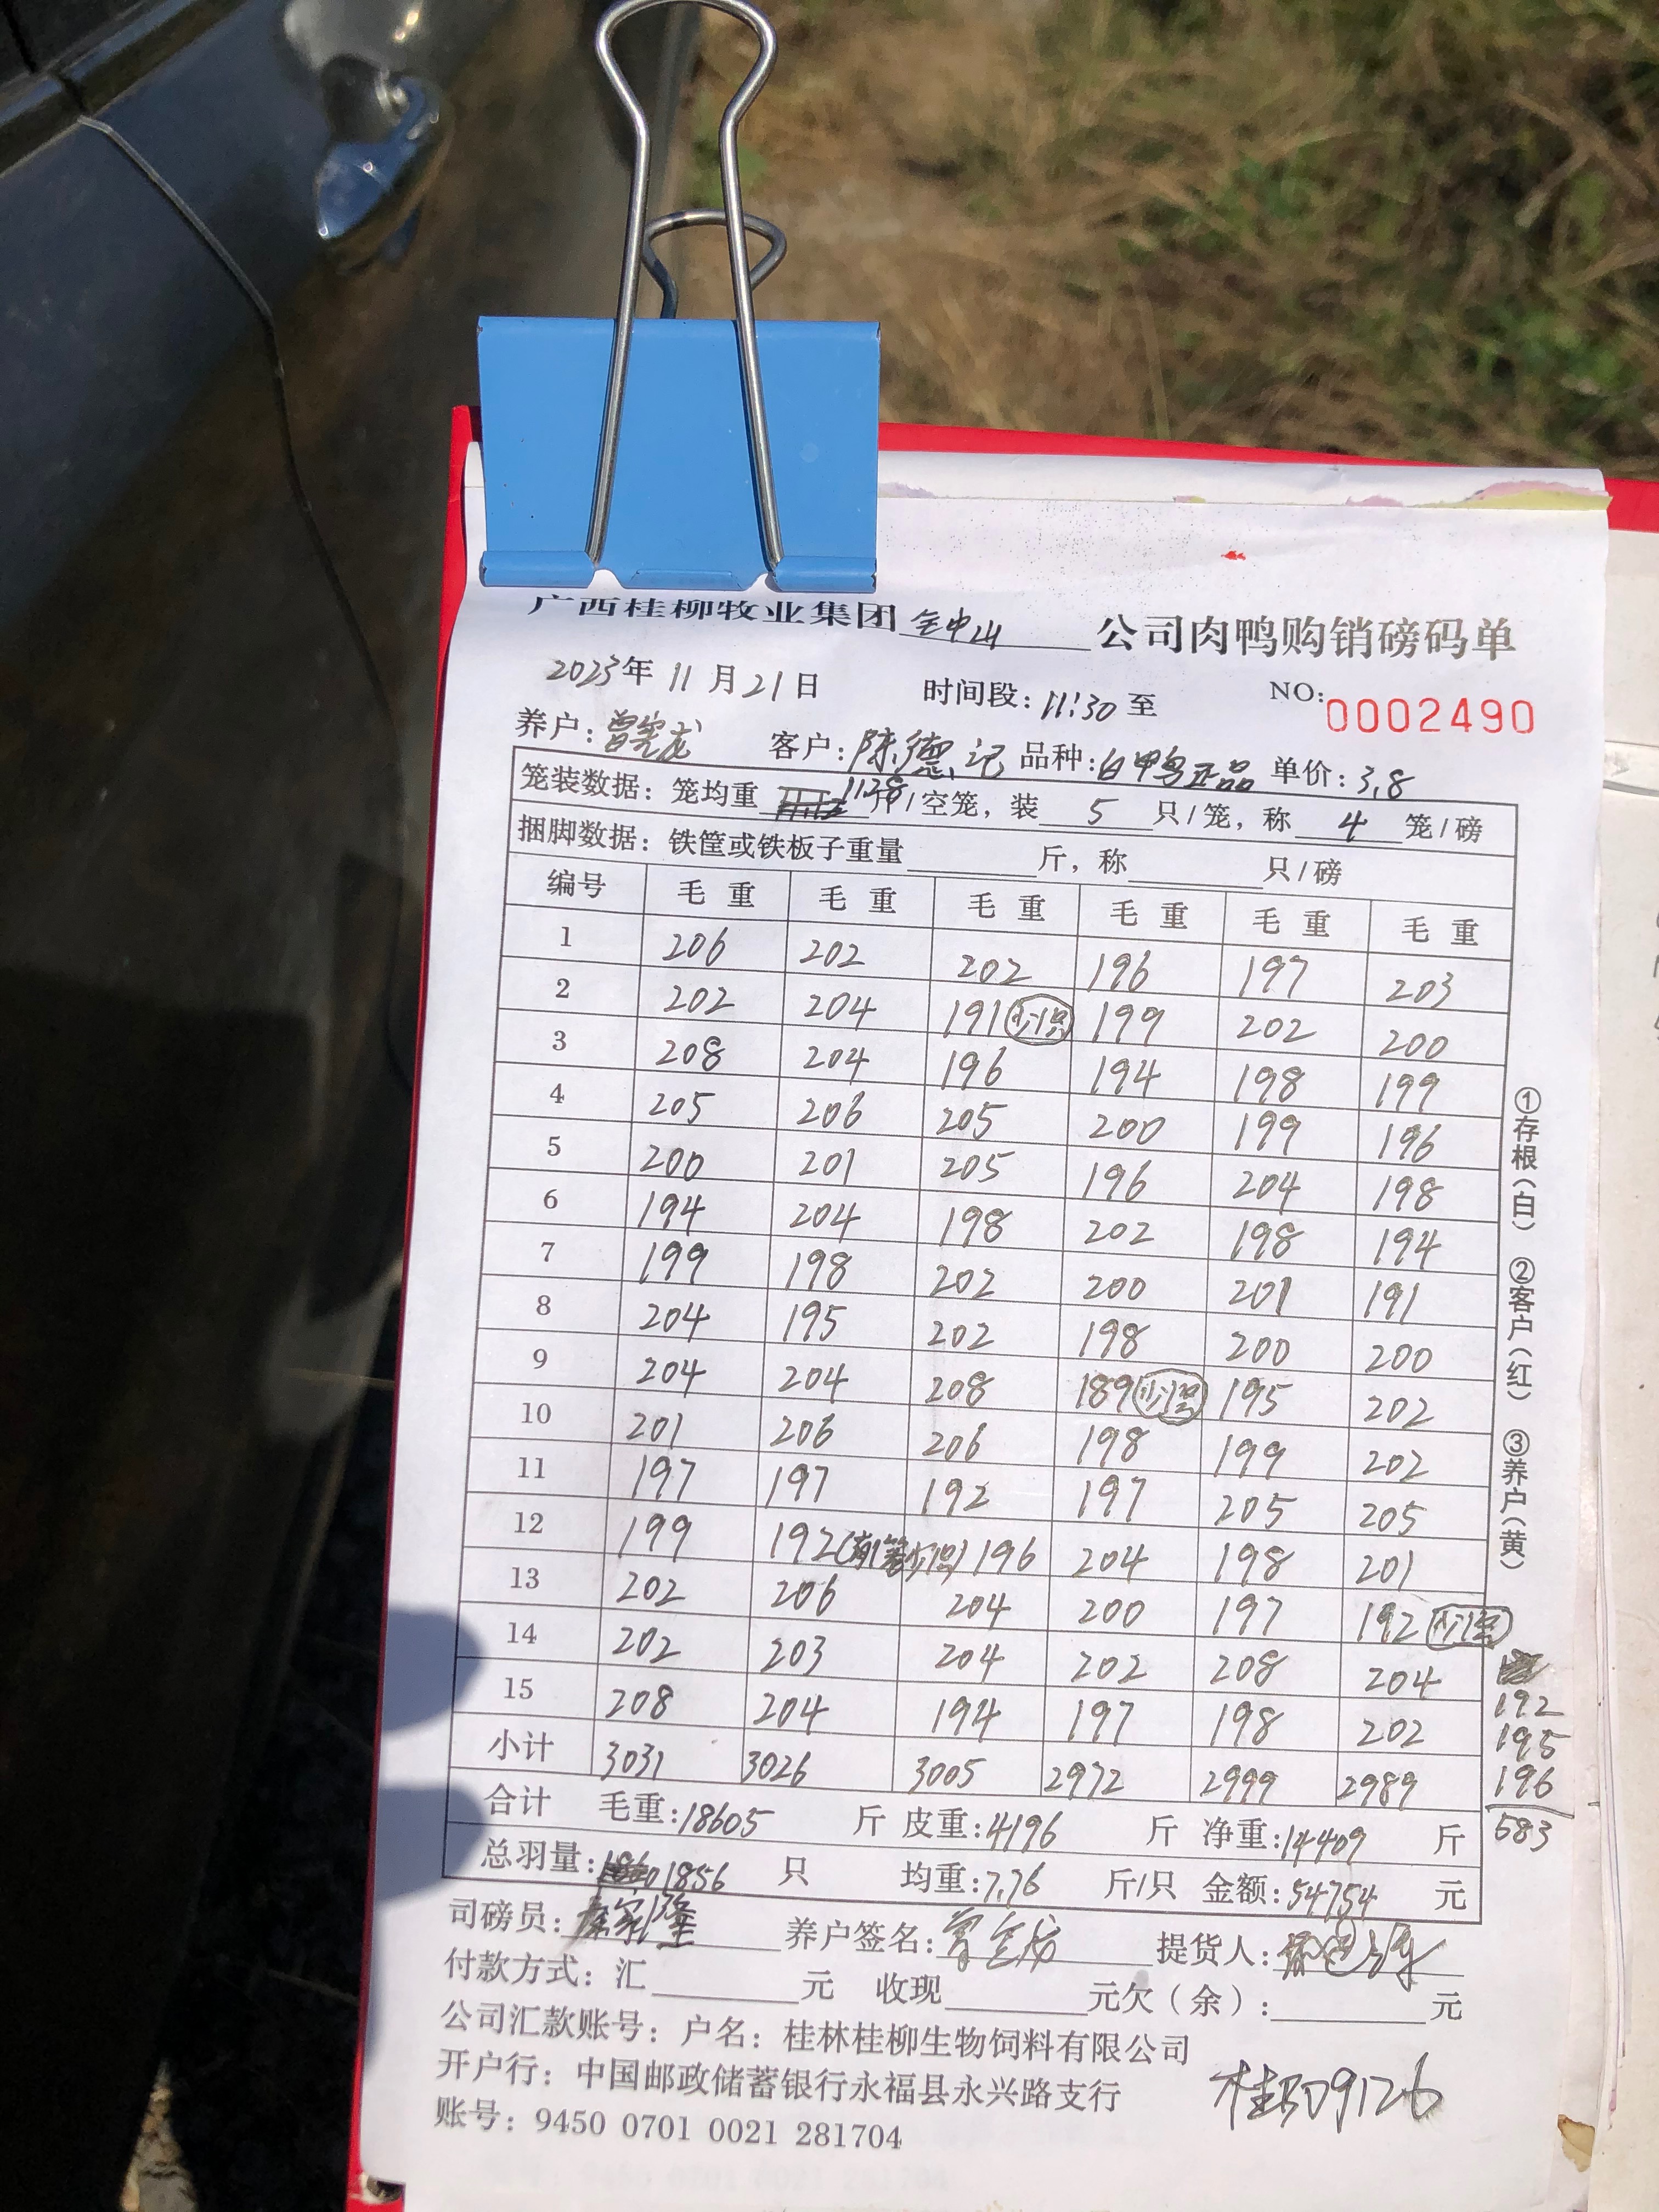 广西桂柳牧业集团 全中山 公司肉鸭购销磅码单
2023年 11月21日 时间段:11:30至 NO:0002490
养户: 客户:陈德记 品种:白鸭正品 单价:3.8
笼装数据:笼均重 11.28 斤/空笼,装 5 只/笼,称 4 笼/磅
捆脚数据:铁筐或铁板子重量 斤,称 只/磅
编号 毛重 毛重 毛重 毛重 毛重 毛重
1 206 202 202 196 197 203
2 202 204 191(少1只) 199 202 200
3 208 204 196 194 198 199
4 205 206 205 200 199 196
5 200 201 205 196 204 198
6 194 204 198 202 198 194
7 199 198 202 200 201 191
8 204 195 202 198 200 200
9 204 204 208 189(少1只) 195 202
10 201 206 206 198 199 202
11 197 197 192 197 205 205
12 199 192(有1笼少1只) 196 204 198 201
13 202 206 204 200 197 192(少1只)
14 202 203 204 202 208 204
15 208 204 194 197 198 202
192
195
196
583
小计 3031 3026 3005 2972 2999 2989
合计 毛重:18605 斤 皮重:4196 斤 净重:14409 斤
总羽量:1856 只 均重:7.76 斤/只 金额:54754 元
司磅员: 养户签名: 提货人:
付款方式:汇 元 收现 元欠(余): 元
公司汇款账号:户名:桂林桂柳生物饲料有限公司
开户行:中国邮政储蓄银行永福县永兴路支行
账号:9450 0701 0021 281704
9126
①存根(白) ②客户(红) ③养户(黄)